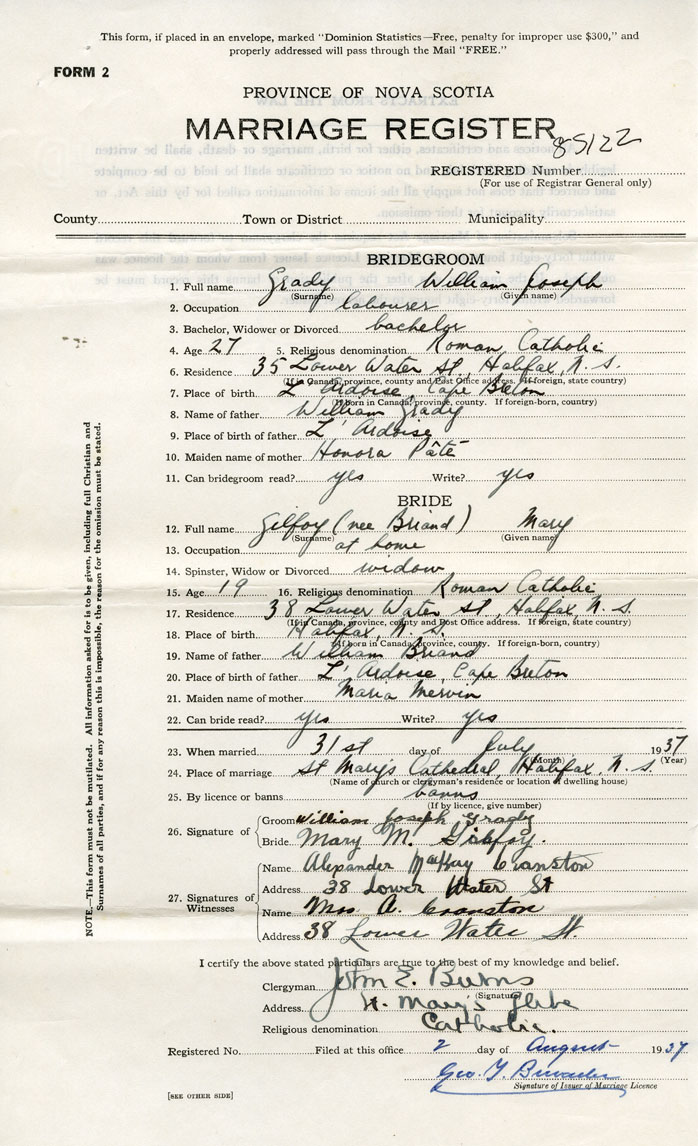 This form, if placed in an envelope, marked "Dominion Statistics—Free, penalty for improper use $300," and
properly addressed will pass through the Mail "FREE."
FORM 2
PROVINCE OF NOVA SCOTIA
MARRIAGE REGISTER
85122
REGISTERED Number
(For use of Registrar General only)
County Town or District Municipality
BRIDEGROOM
1. Full name Grady William Joseph
(Surname) (Given name)
2. Occupation labourer
3. Bachelor, Widower or Divorced bachelor
4. Age 27 5. Religious denomination Roman Catholic
6. Residence 35 Lower Water St, Halifax, N. S.
(If in Canada, province, county and Post Office address. If foreign, state country)
7. Place of birth L'Ardoise, Cape Breton
(If born in Canada, province, county. If foreign-born, country)
8. Name of father William Grady
9. Place of birth of father L'Ardoise
10. Maiden name of mother Honora Pâté
11. Can bridegroom read? yes Write? yes
BRIDE
12. Full name Gilfoy (nee Briand) Mary
(Surname) (Given name)
13. Occupation at home
14. Spinster, Widow or Divorced widow
15. Age 19 16. Religious denomination Roman Catholic
17. Residence 38 Lower Water St, Halifax, N. S.
(If in Canada, province, county and Post Office address. If foreign, state country)
18. Place of birth Halifax, N. S.
(If born in Canada, province, county. If foreign-born, country)
19. Name of father William Briand
20. Place of birth of father L'Ardoise, Cape Breton
21. Maiden name of mother Maria Mervin
22. Can bride read? yes Write? yes
23. When married 31st day of July 1937
(Month) (Year)
24. Place of marriage St Mary's Cathedral, Halifax, N. S.
(Name of church or clergyman's residence or location of dwelling house)
25. By licence or banns banns
(If by licence, give number)
26. Signature of
Groom William Joseph Grady
Bride Mary M. Gilfoy.
27. Signatures of Witnesses
Name Alexander MacKay Cranston
Address 38 Lower Water St
Name Mrs. A. Cranston
Address 38 Lower Water St.
I certify the above stated particulars are true to the best of my knowledge and belief.
Clergyman John E. Burns
(Signature)
Address St. Mary's Glebe
Religious denomination Catholic.
Registered No. Filed at this office 2 day of August 1937
Geo. Y.
Signature of Issuer of Marriage Licence
[SEE OTHER SIDE]
NOTE.—This form must not be mutilated. All information asked for is to be given, including full Christian and
Surnames of all parties, and if for any reason this is impossible, the reason for the omission must be stated.